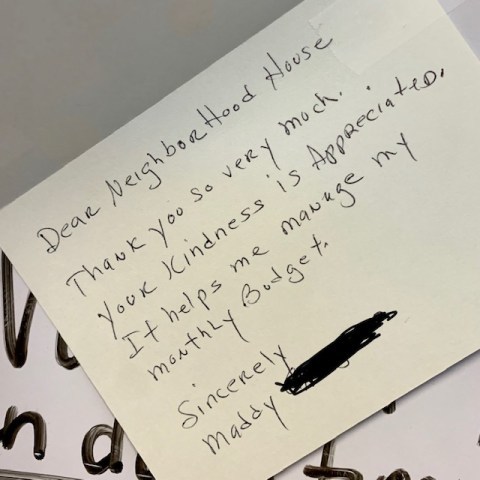 Dear Neighborhood House
Thank you so very much.
your Kindness is Appreciated.
It helps me manage my
monthly Budget.
Sincerely
Maddy